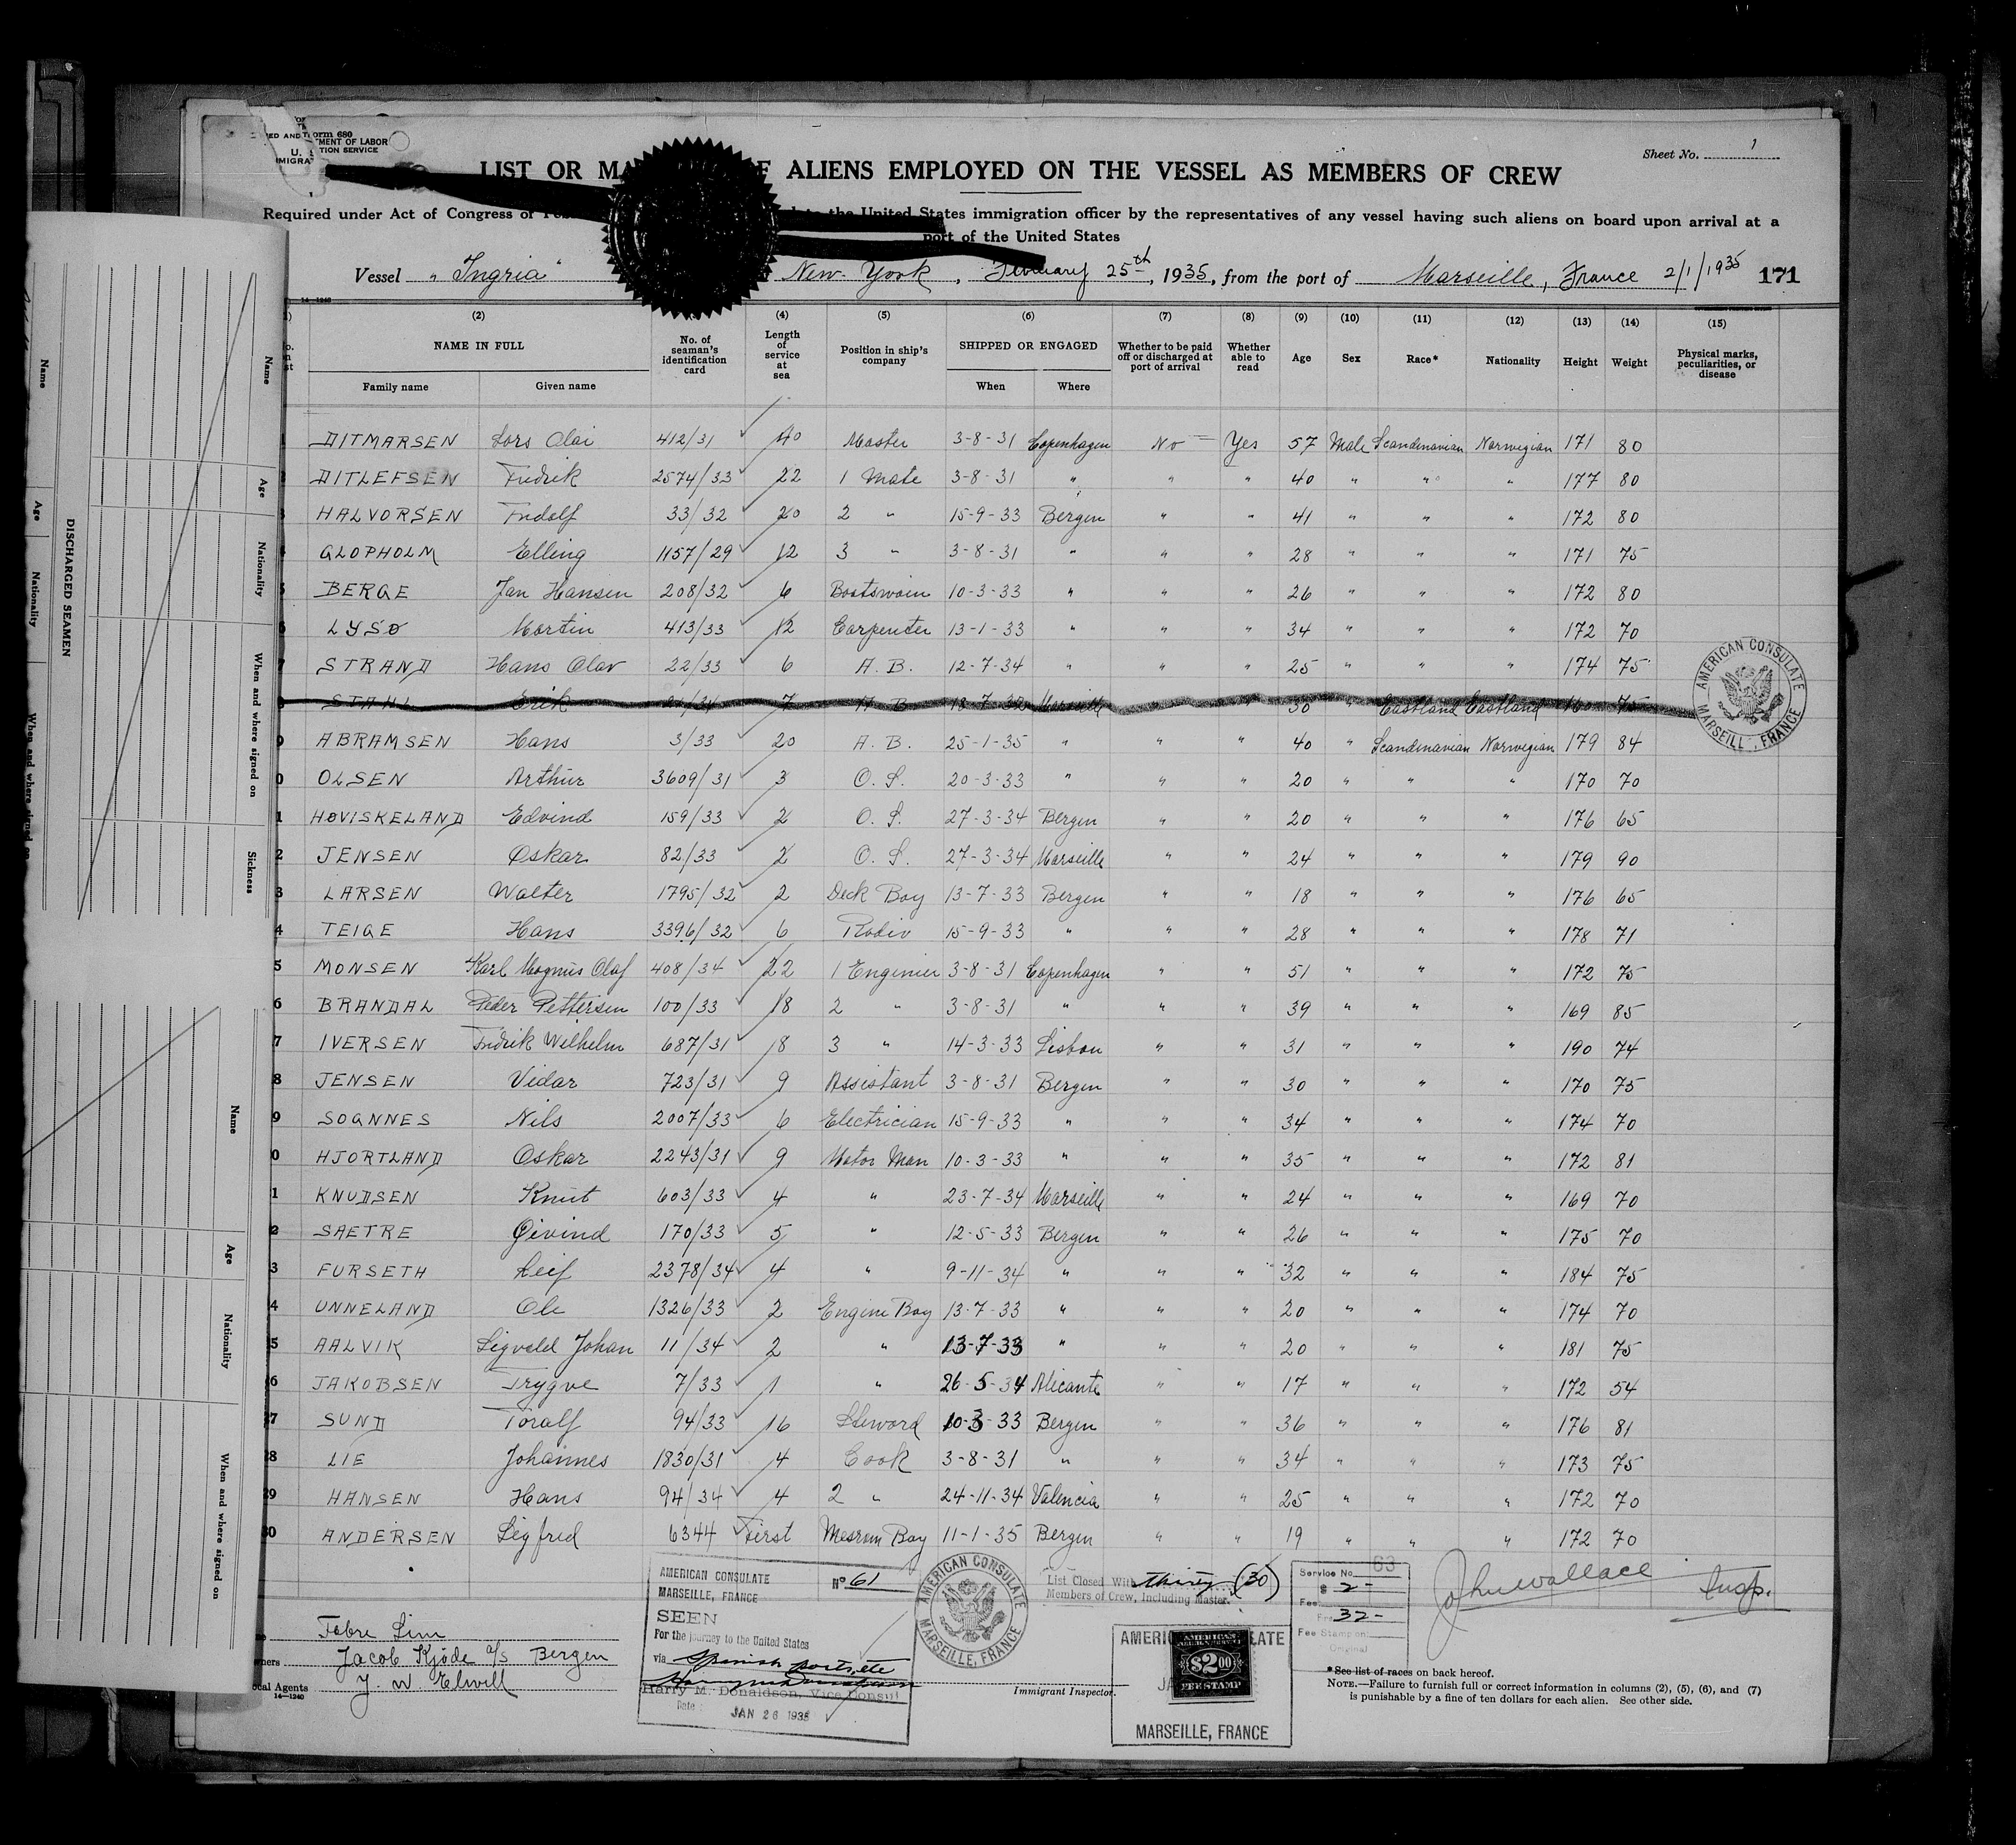 Form 680
MENT OF LABOR
U. S. TION SERVICE
Sheet No. 1
LIST OR MA F ALIENS EMPLOYED ON THE VESSEL AS MEMBERS OF CREW
Required under Act of Congress of the United States immigration officer by the representatives of any vessel having such aliens on board upon arrival at a
port of the United States
Vessel "Ingria" New York, February 25th, 1935, from the port of Marseille, France 2/1/1935 171
14—1240
(2) (4) (5) (6) (7) (8) (9) (10) (11) (12) (13) (14) (15)
NAME IN FULL No. of seaman's identification card Length of service at sea Position in ship's company SHIPPED OR ENGAGED Whether to be paid off or discharged at port of arrival Whether able to read Age Sex Race* Nationality Height Weight Physical marks, peculiarities, or disease
Family name Given name When Where
1 DITMARSEN Lars Olai 412/31 40 Master 3-8-31 Copenhagen No Yes 57 Male Scandinavian Norwegian 171 80
DITLEFSEN Fridrik 2574/33 22 1 Mate 3-8-31 " " " 40 " " " 177 80
HALVORSEN Fridolf 33/32 20 2 " 15-9-33 Bergen " " 41 " " " 172 80
GLOPHOLM Elling 1157/29 12 3 " 3-8-31 " " " 28 " " " 171 75
BERGE Jan Hansen 208/32 6 Boatswain 10-3-33 " " " 26 " " " 172 80
LYSØ Martin 413/33 12 Carpenter 13-1-33 " " " 34 " " " 172 70
7 STRAND Hans Olav 22/33 6 A.B. 12-7-34 " " " 25 " " " 174 75
STAHL Erik 21/34 7 A B 18-7-32 Marseille " " 30 " Eastland Eastland 160 75
ABRAMSEN Hans 3/33 20 A.B. 25-1-35 " " " 40 " Scandinavian Norwegian 179 84
0 OLSEN Arthur 3609/31 3 O.S. 20-3-33 " " " 20 " " " 170 70
1 HØVISKELAND Edvind 159/33 2 O.S. 27-3-34 Bergen " " 20 " " " 176 65
2 JENSEN Oskar 82/33 2 O.S. 27-3-34 Marseille " " 24 " " " 179 90
3 LARSEN Walter 1795/32 2 Deck Boy 13-7-33 Bergen " " 18 " " " 176 65
4 TEIGE Hans 3396/32 6 Radio 15-9-33 " " " 28 " " " 178 71
5 MONSEN Karl Magnus Olaf 408/34 22 1 Enginier 3-8-31 Copenhagen " " 51 " " " 172 75
6 BRANDAL Peder Pettersen 100/33 18 2 " 3-8-31 " " " 39 " " " 169 85
7 IVERSEN Fridrik Wilhelm 687/31 8 3 " 14-3-33 Lisbon " " 31 " " " 190 74
8 JENSEN Vidar 723/31 9 Assistant 3-8-31 Bergen " " 30 " " " 170 75
9 SOGNNES Nils 2007/33 6 Electrician 15-9-33 " " " 34 " " " 174 70
0 HJORTLAND Oskar 2243/31 9 Motor Man 10-3-33 " " " 35 " " " 172 81
1 KNUDSEN Knut 603/33 4 " 23-7-34 Marseille " " 24 " " " 169 70
2 SAETRE Øivind 170/33 5 " 12-5-33 Bergen " " 26 " " " 175 70
3 FURSETH Leif 2378/34 4 " 9-11-34 " " " 32 " " " 184 75
4 UNNELAND Ole 1326/33 2 Engine Boy 13-7-33 " " " 20 " " " 174 70
5 AALVIK Sigvald Johan 11/34 2 " 13-7-33 " " " 20 " " " 181 75
6 JAKOBSEN Trygve 7/33 1 " 26-5-34 Alicante " " 17 " " " 172 54
27 SUND Toralf 94/33 16 Steward 10-3-33 Bergen " " 36 " " " 176 81
28 LIE Johannes 1830/31 4 Cook 3-8-31 " " " 34 " " " 173 75
29 HANSEN Hans 94/34 4 2 " 24-11-34 Valencia " " 25 " " " 172 70
30 ANDERSEN Sigfred 6344 First Mesrom Boy 11-1-35 Bergen " " 19 " " " 172 70
AMERICAN CONSULATE
MARSEILLE, FRANCE
Nº 61
SEEN
For the journey to the United States
via Spanish ports, etc
Harry M. Donaldson, Vice Consul
Date: JAN 26 1935
AMERICAN CONSULATE MARSEILLE, FRANCE
List Closed With thirty (30)
Members of Crew, Including Master.
Service No. 63
$ 2-
Fee
32-
Fee Stamp on
Original
John Wallace Insp.
Fabre Line
Owners Jacob Kjøde a/s Bergen
Local Agents J. W. Elwell
14—1240
Immigrant Inspector.
AMERICAN CONSULATE
$2.00
FEE STAMP
MARSEILLE, FRANCE
* See list of races on back hereof.
NOTE.—Failure to furnish full or correct information in columns (2), (5), (6), and (7)
is punishable by a fine of ten dollars for each alien. See other side.
AMERICAN CONSULATE MARSEILLE, FRANCE
DISCHARGED SEAMEN
Name Age Nationality When and where signed on
Name Age Nationality When and where signed on Sickness
Name Age Nationality When and where signed on